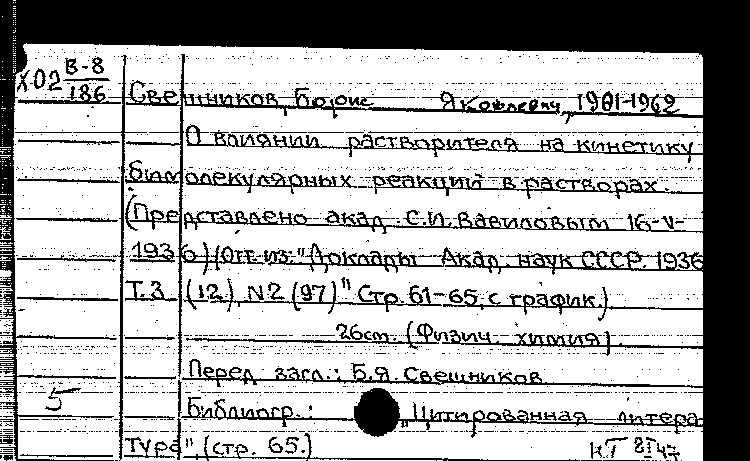 Х02 В-8
186
Свешников, Борис Яковлевич, 1901-1962
О влиянии растворителя на кинетику
бимолекулярных реакций в растворах.
(Представлено акад. С.И. Вавиловым 16-V-
1936) (Отт. из: "Доклады Акад. наук СССР. 1936
Т. 3 (12), N2 (97)" Стр. 61-65, с график.)
26см. (Физич. химия)
Перед загл.: Б.Я. Свешников
5
Библиогр.: "Цитированная литера
тура", (стр. 65.)